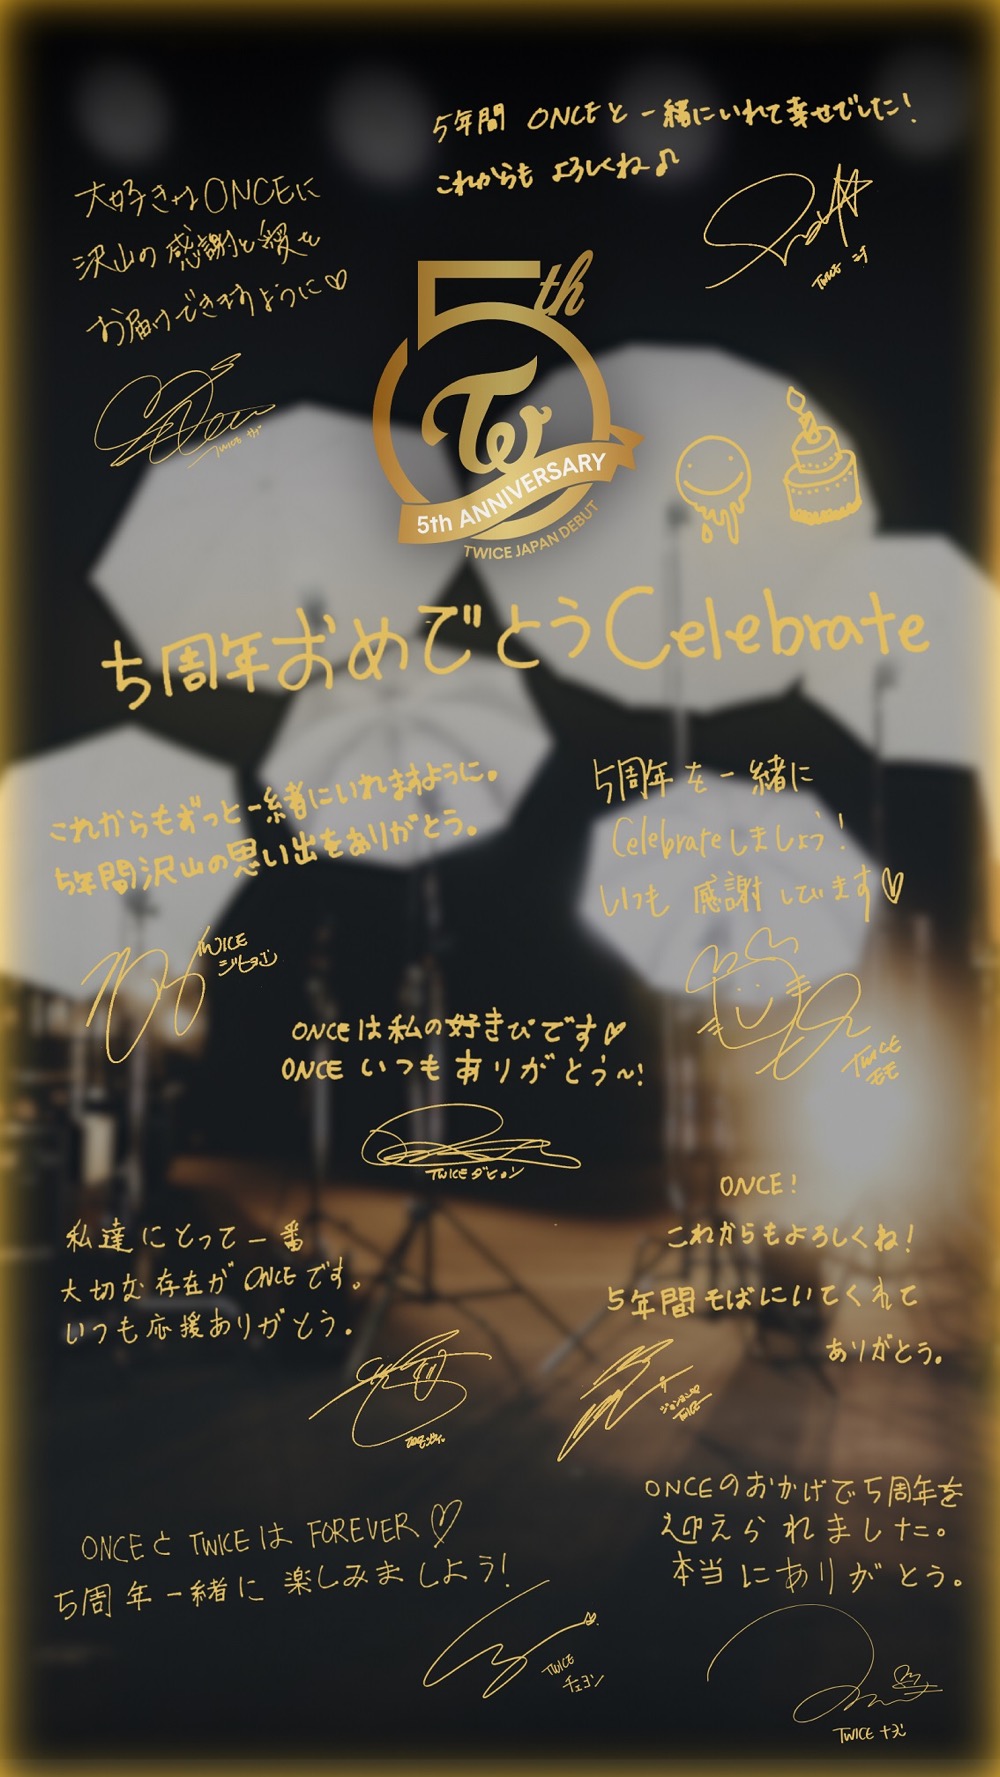 5年間 ONCEと一緒にいれて幸せでした!
これからも よろしくね♪
TWICE ミナ
大好きなONCEに
沢山の感謝と愛を
お届けできますように♡
TWICE サナ
5th
TW
5th ANNIVERSARY
TWICE JAPAN DEBUT
5周年おめでとうCelebrate
これからもずっと一緒にいれますように。
5年間沢山の思い出をありがとう。
TWICE
ジヒョ
5周年を一緒に
Celebrateしましょう!
いつも 感謝しています♡
TWICE
モモ
ONCEは私の好きぴです♡
ONCE いつもありがとう〜!
TWICEダヒョン
私達にとって一番
大切な存在がONCEです。
いつも応援ありがとう。
ONCE!
これからもよろしくね!
5年間そばにいてくれて
ありがとう。
ジョンヨン
TWICE
ONCEとTWICEはFOREVER♡
5周年一緒に楽しみましょう!
TWICE
チェヨン
ONCEのおかげで5周年を
迎えられました。
本当にありがとう。
TWICE ナヨン